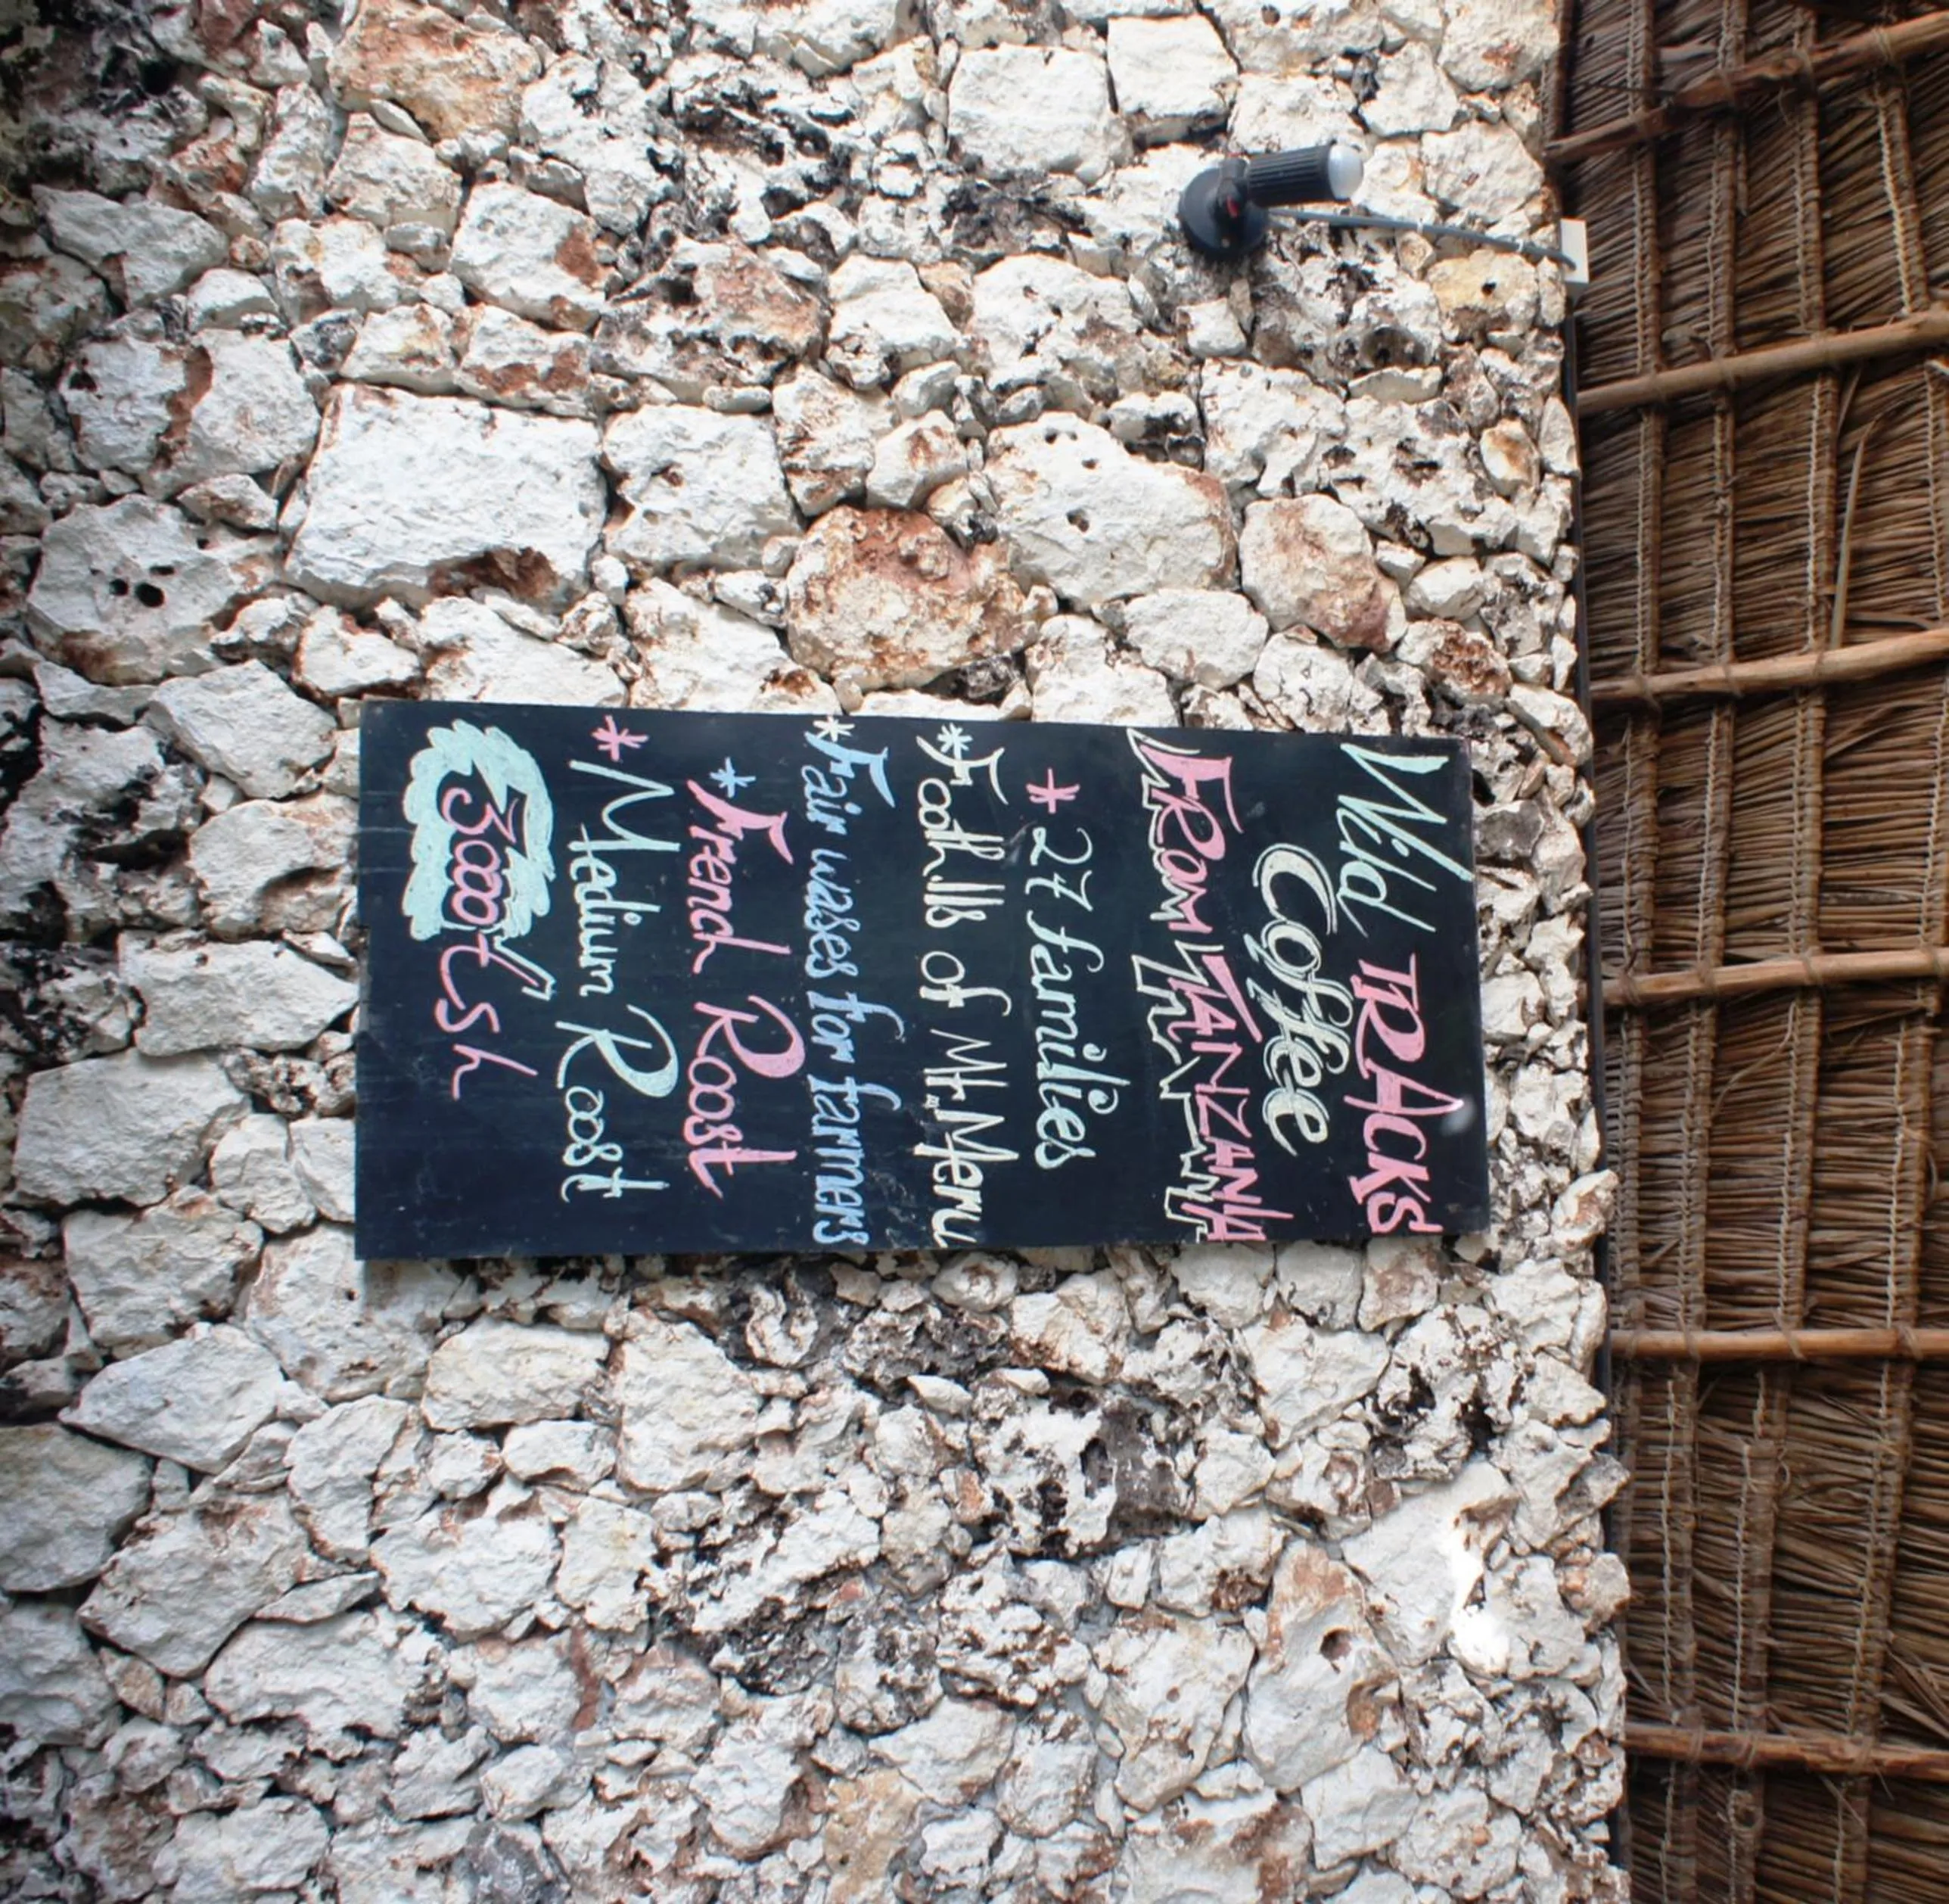 Wild TRACKS
Coffee
FROM TANZANIA
* 27 families
* Foothills of Mt. Meru
* Fair wases for farmers
* French Roost
* Medium Roost
3000 Tsh